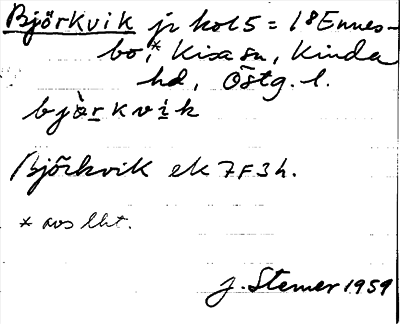 Björkvik jr kol 5 = 1⁸ Ennes-
bo,* Kisa sn, Kinda
hd, Östg. l.
bjàrkvìk
Björkvik ek 7F3h.
* avs lht.
J. Sterner 1959